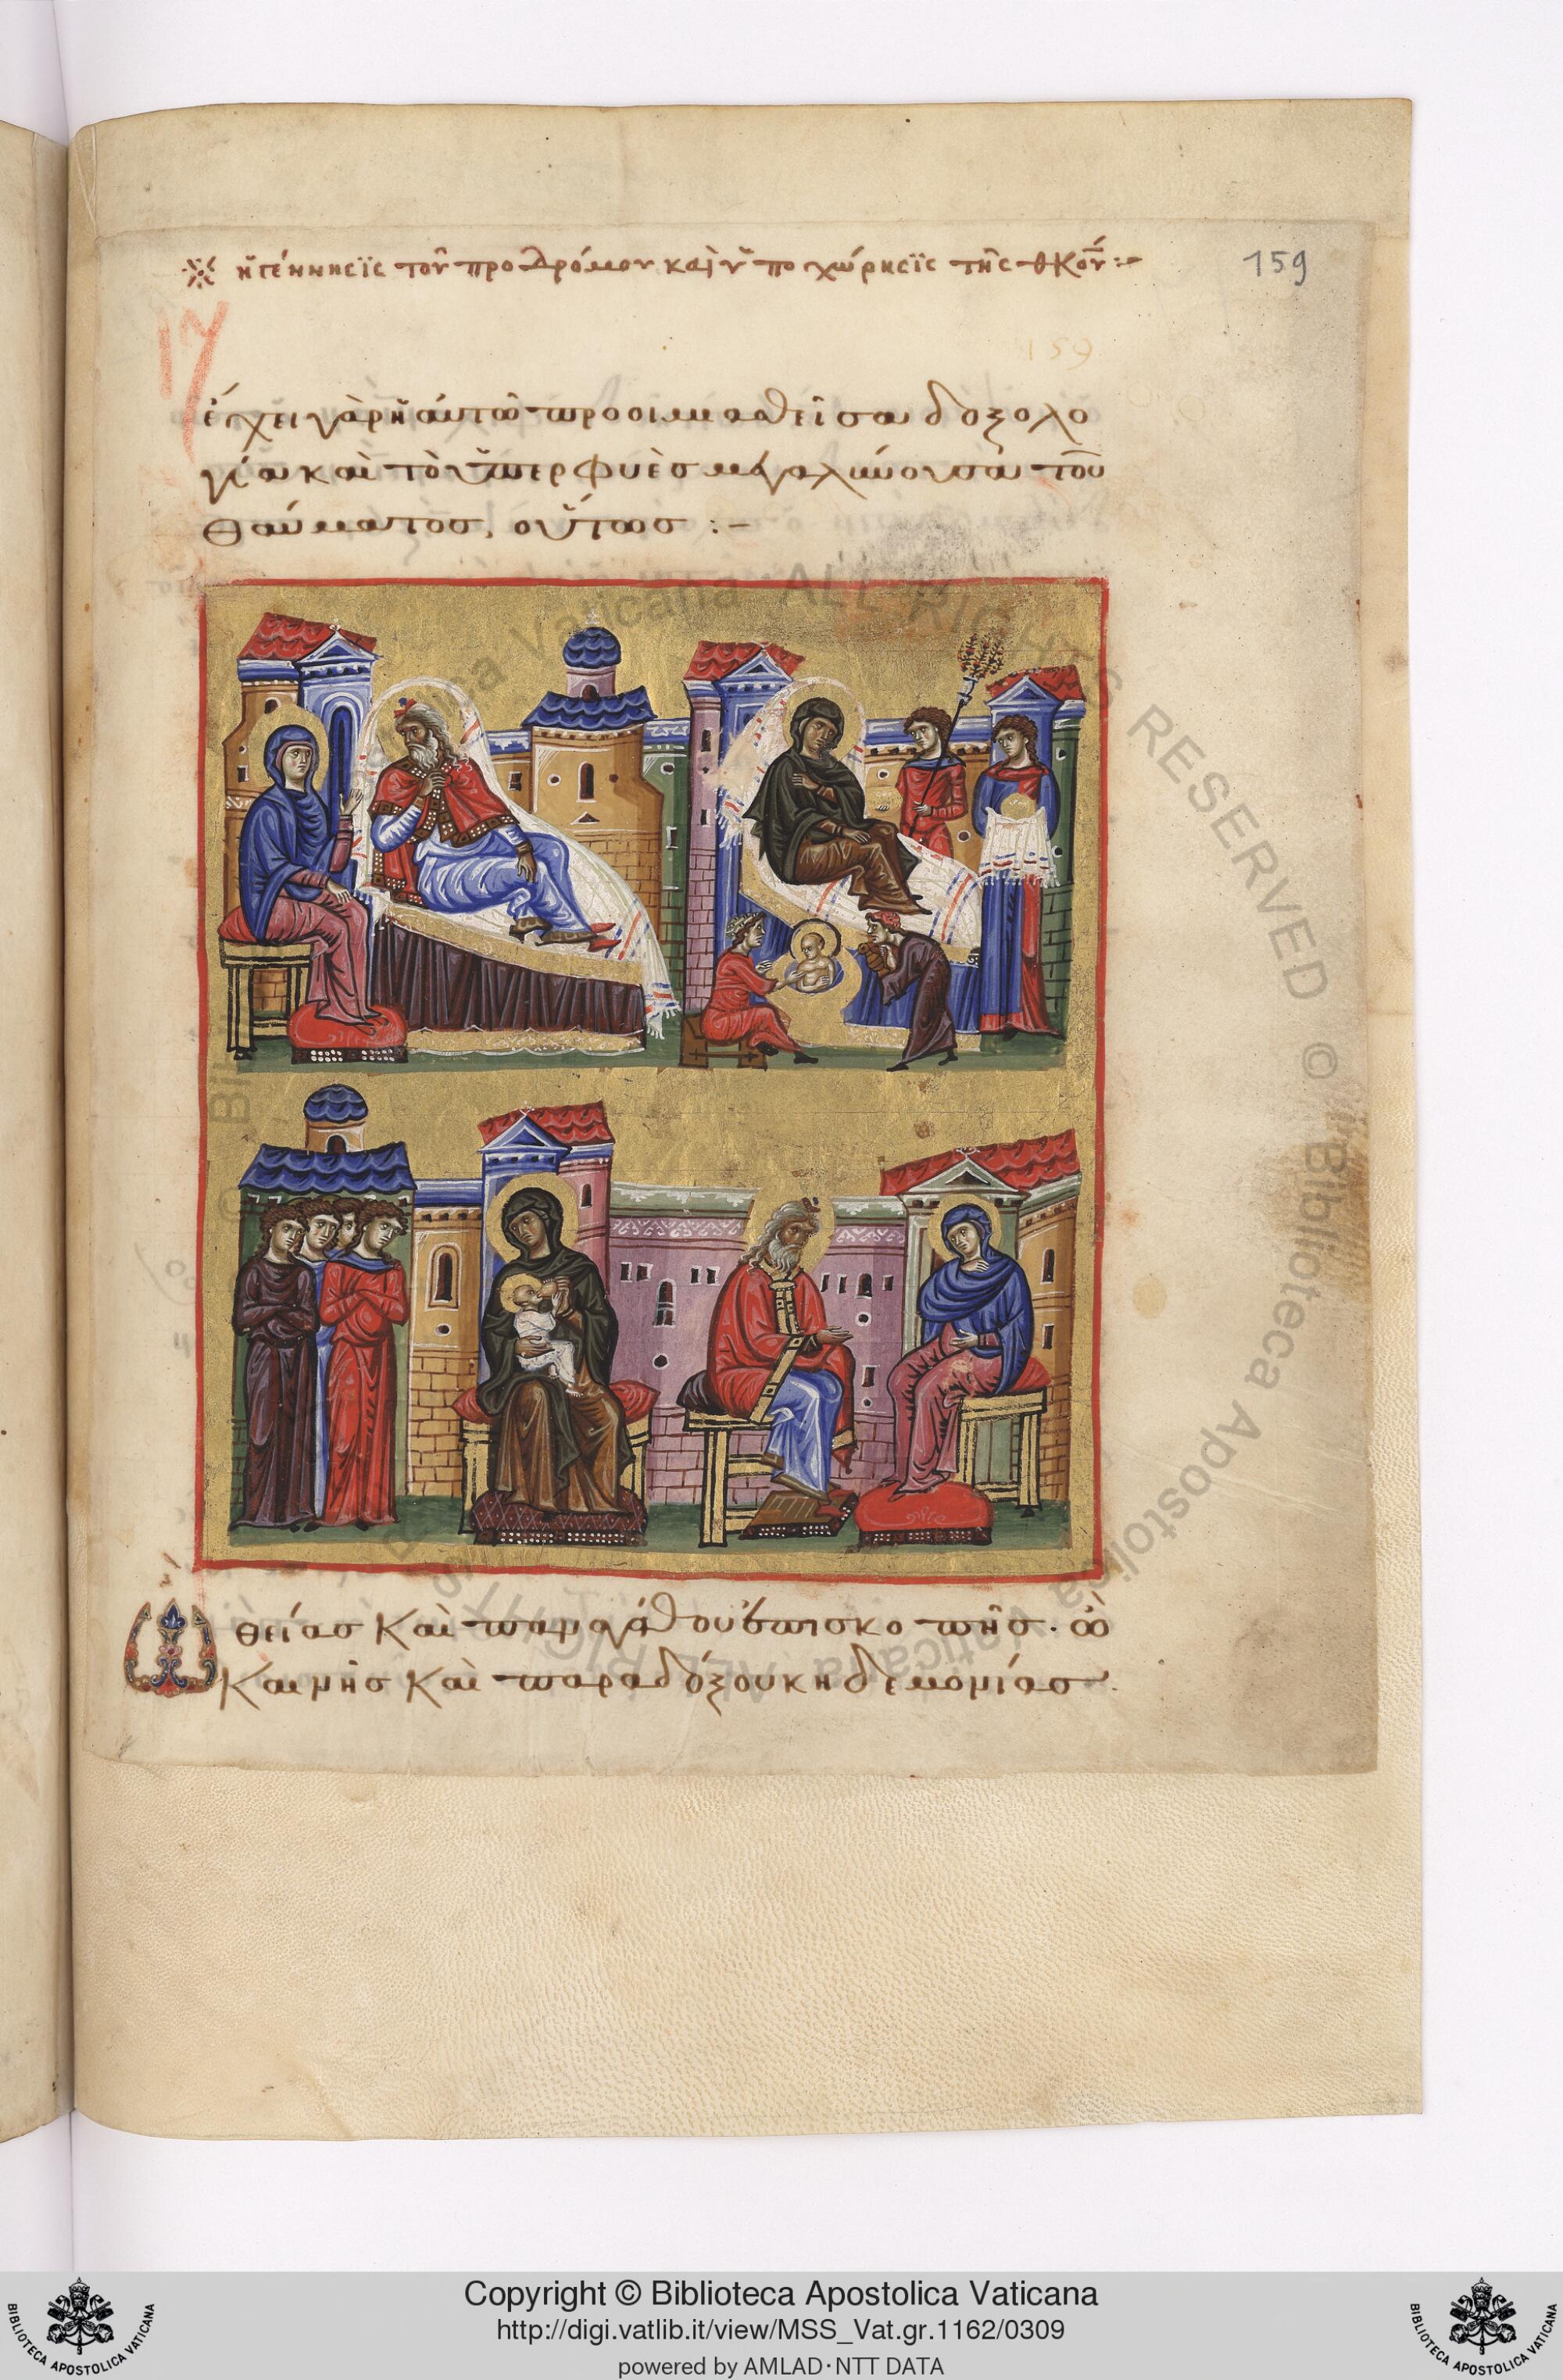 ἡ γέννησϊς τοῦ προδρόμου καὶ ὑποχώρησϊς τῆς θκου:~
159
17
159
ἔχει γὰρ ἡ αὐτῶ προοιμιασθεῖσα δοξολο
γία καὶ τὸ ὑπερφυὲς μεγαλύνουσα τοῦ
θαύματος, οὕτως :~
Ὢ θείας καὶ παναγάθου ἐπισκοπῆς. ὢ
καινῆς καὶ παραδόξου κηδεμονίας.
Copyright © Biblioteca Apostolica Vaticana
http://digi.vatlib.it/view/MSS_Vat.gr.1162/0309
powered by AMLAD·NTT DATA
BIBLIOTECA APOSTOLICA VATICANA
BIBLIOTECA APOSTOLICA VATICANA
© Biblioteca Apostolica Vaticana ALL RIGHTS RESERVED © Biblioteca Apostolica Vaticana ALL RIGHTS